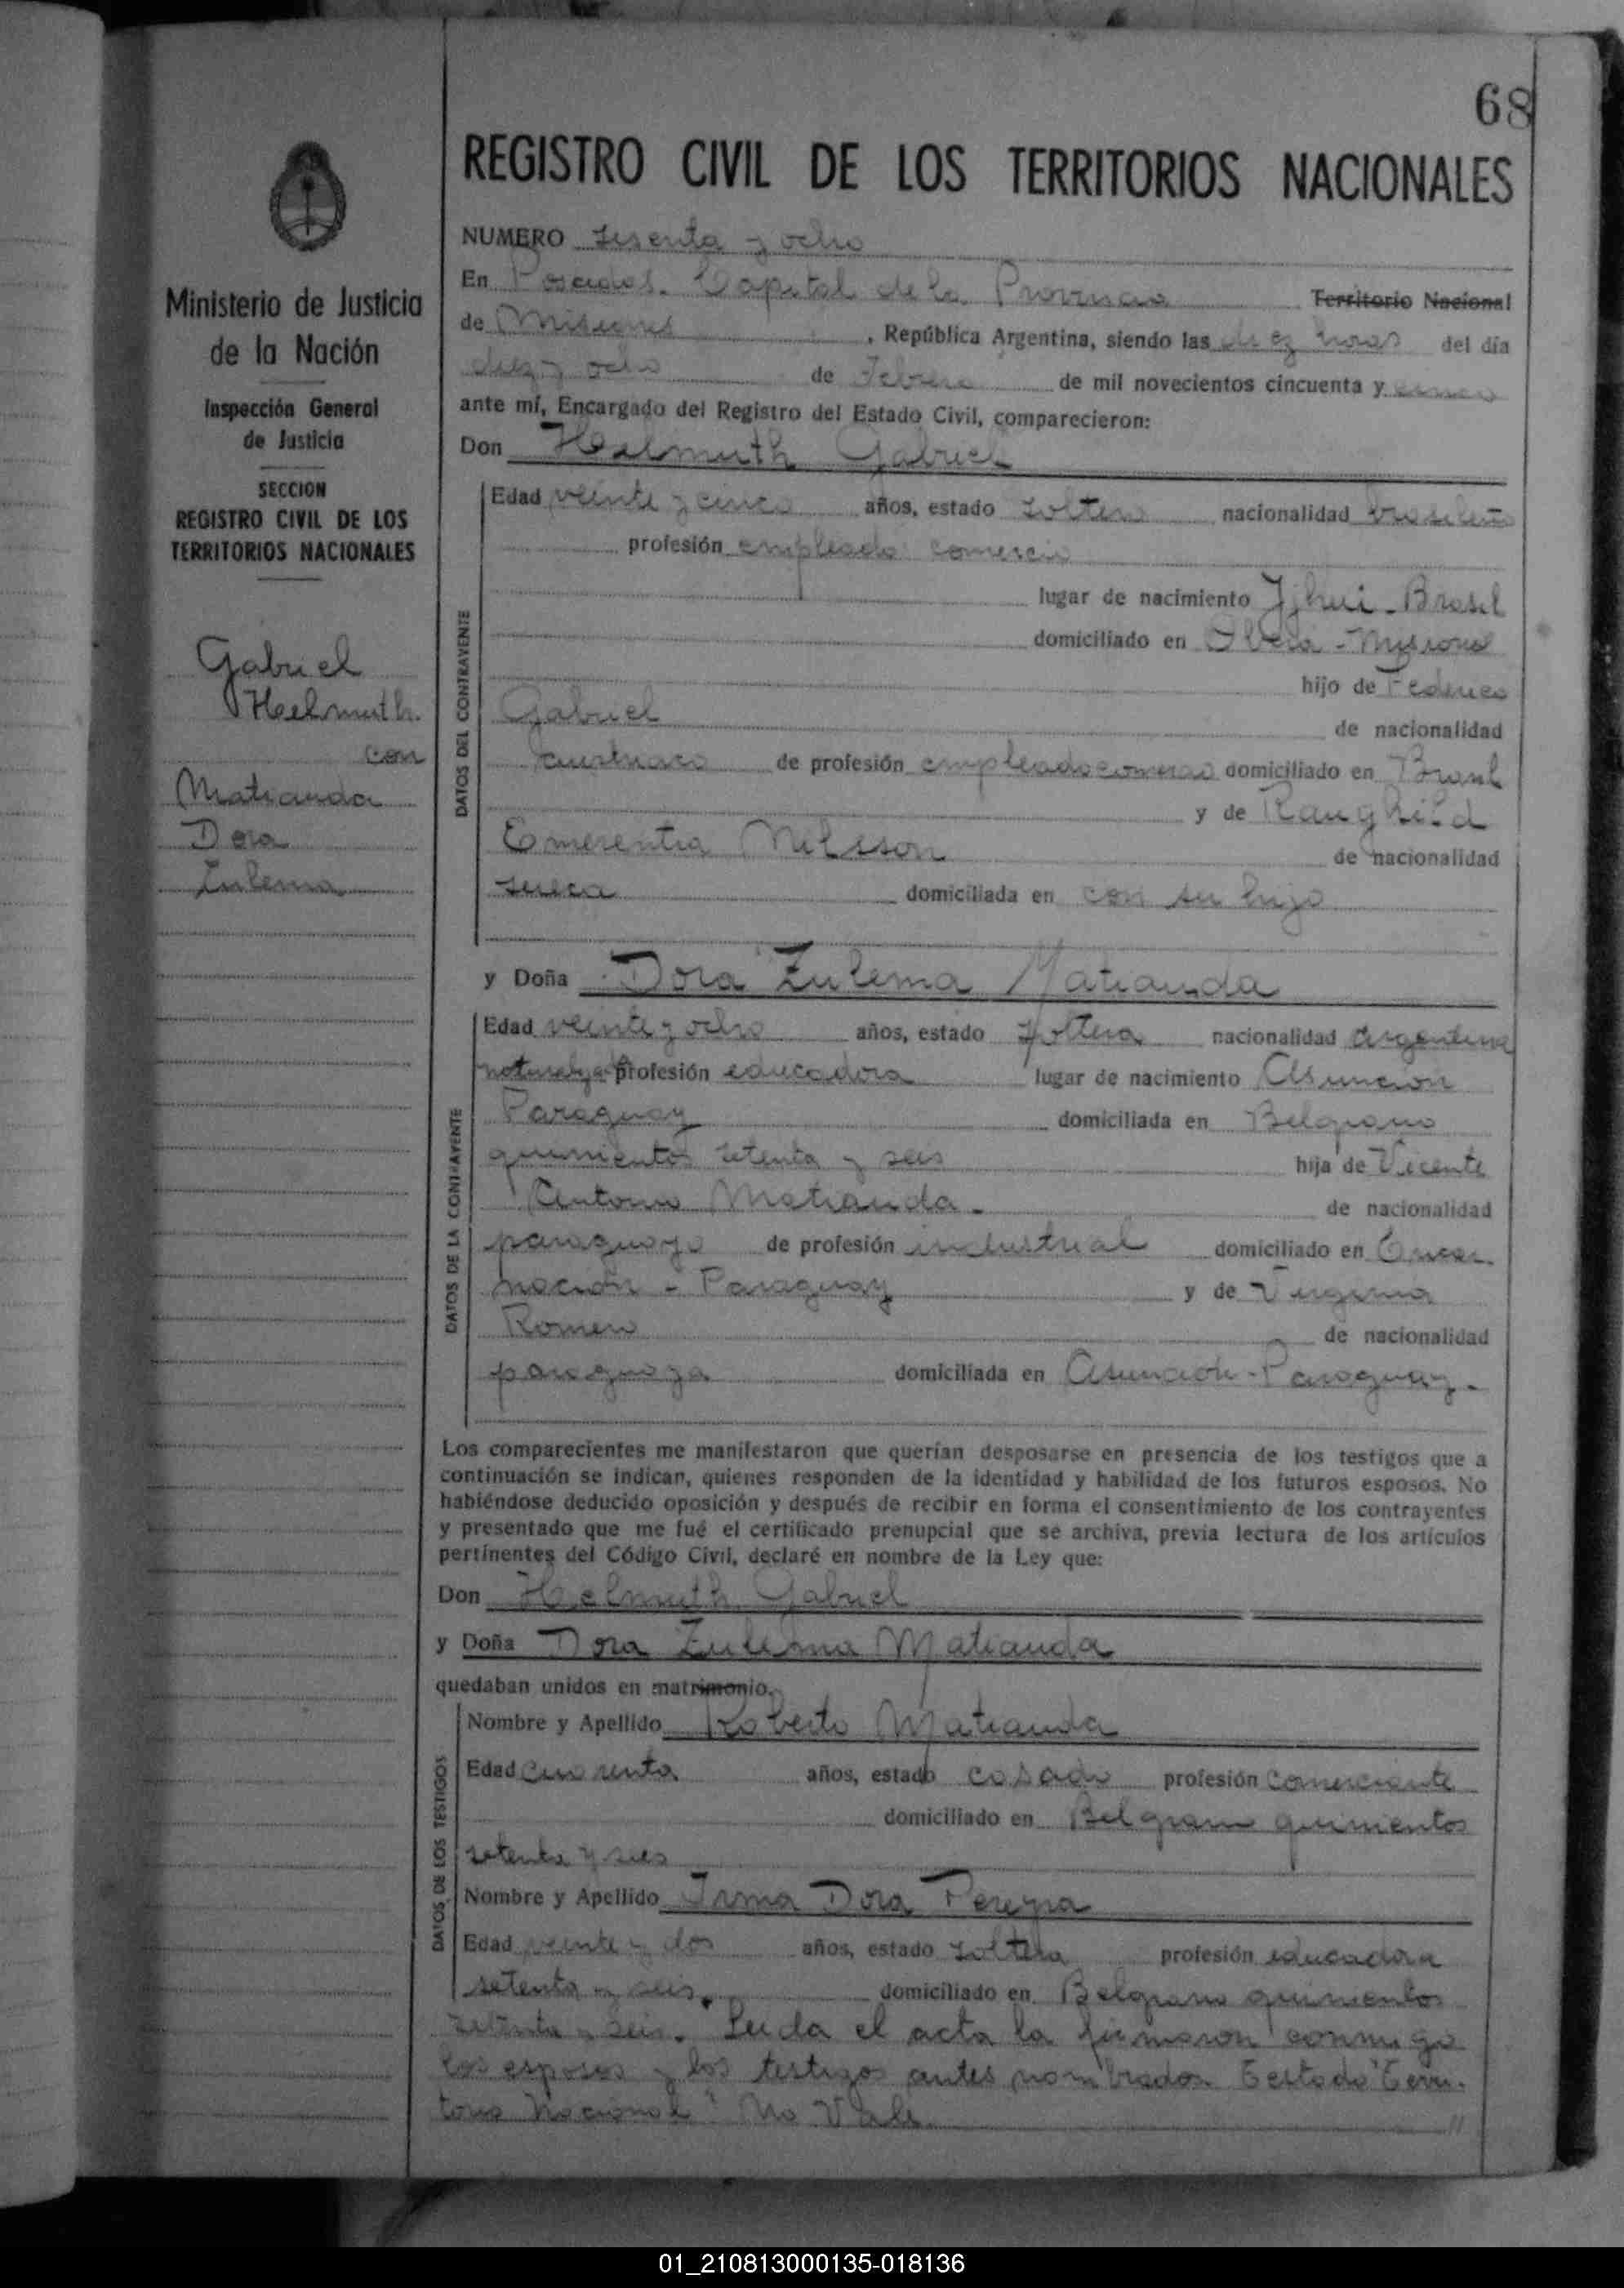 68
REGISTRO CIVIL DE LOS TERRITORIOS NACIONALES
Ministerio de Justicia
de la Nación
Inspección General
de Justicia
SECCION
REGISTRO CIVIL DE LOS
TERRITORIOS NACIONALES
Gabriel
Helmuth
con
Matiauda
Dora
Zulema
NUMERO sesenta y ocho
En Posadas. Capital de la Provincia Territorio Nacional
de Misiones, República Argentina, siendo las diez horas del día
diez y ocho de Febrero de mil novecientos cincuenta y cinco
ante mí, Encargado del Registro del Estado Civil, comparecieron:
Don Helmuth Gabriel
DATOS DEL CONTRAYENTE
Edad veinte y cinco años, estado soltero nacionalidad brasileño
profesión empleado comercio
lugar de nacimiento Ijhui - Brasil
domiciliado en Oberá - Misiones
hijo de Federico
Gabriel de nacionalidad
austriaco de profesión empleado comercio domiciliado en Brasil
y de Raughild
Emerentia Nilsson de nacionalidad
sueca domiciliada en con su hijo
y Doña Dora Zulema Matiauda
DATOS DE LA CONTRAYENTE
Edad veinte y ocho años, estado soltera nacionalidad argentina
naturalizada profesión educadora lugar de nacimiento Asunción
Paraguay domiciliada en Belgrano
quinientos setenta y seis hija de Vicente
Antonio Matiauda. de nacionalidad
paraguayo de profesión industrial domiciliado en Encar
nación - Paraguay y de Virginia
Romero de nacionalidad
paraguaya domiciliada en Asunción - Paraguay.
Los comparecientes me manifestaron que querían desposarse en presencia de los testigos que a
continuación se indican, quienes responden de la identidad y habilidad de los futuros esposos. No
habiéndose deducido oposición y después de recibir en forma el consentimiento de los contrayentes
y presentado que me fué el certificado prenupcial que se archiva, previa lectura de los artículos
pertinentes del Código Civil, declaré en nombre de la Ley que:
Don Helmuth Gabriel
y Doña Dora Zulema Matiauda
quedaban unidos en matrimonio.
DATOS DE LOS TESTIGOS
Nombre y Apellido Roberto Matiauda
Edad cuarenta años, estado casado profesión comerciante
domiciliado en Belgrano quinientos
setenta y seis
Nombre y Apellido Irma Dora Pereyra
Edad veinte y dos años, estado soltera profesión educadora
setenta y seis. domiciliado en Belgrano quinientos
setenta y seis. Leida el acta la firmaron conmigo
los esposos y los testigos antes nombrados. Testado "Terri-
torio Nacional" No Vale.
01_210813000135-018136